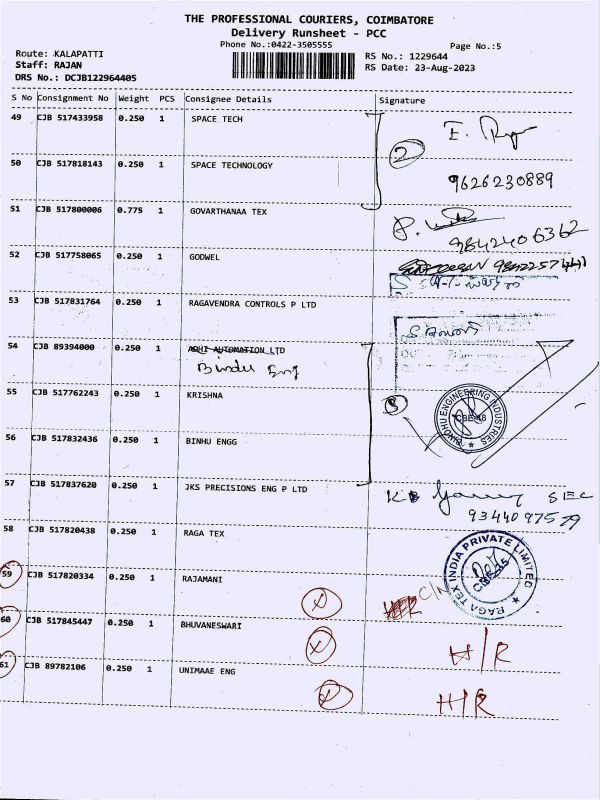 THE PROFESSIONAL COURIERS, COIMBATORE
Delivery Runsheet - PCC
Phone No.:0422-3505555
Page No.:5
Route: KALAPATTI
Staff: RAJAN
DRS No.: DCJB122964405
RS No.: 1229644
RS Date: 23-Aug-2023
S No Consignment No Weight PCS Consignee Details Signature
49 CJB 517433958 0.250 1 SPACE TECH
2
50 CJB 517818143 0.250 1 SPACE TECHNOLOGY
9626230889
51 CJB 517800006 0.775 1 GOVARTHANAA TEX
9842406362
52 CJB 517758065 0.250 1 GODWEL
53 CJB 517831764 0.250 1 RAGAVENDRA CONTROLS P LTD
54 CJB 89394000 0.250 1 ADHI AUTOMATION LTD
Bindu Eng
55 CJB 517762243 0.250 1 KRISHNA
3
BINDHU ENGINEERING INDUSTRIES
CBE-48
56 CJB 517832436 0.250 1 BINHU ENGG
57 CJB 517837620 0.250 1 JKS PRECISIONS ENG P LTD
SEC
93440 97579
58 CJB 517820438 0.250 1 RAGA TEX
RAGA TEX INDIA PRIVATE LIMITED
59 CJB 517820334 0.250 1 RAJAMANI
60 CJB 517845447 0.250 1 BHUVANESWARI
H/R
61 CJB 89782106 0.250 1 UNIMAAE ENG
H/R